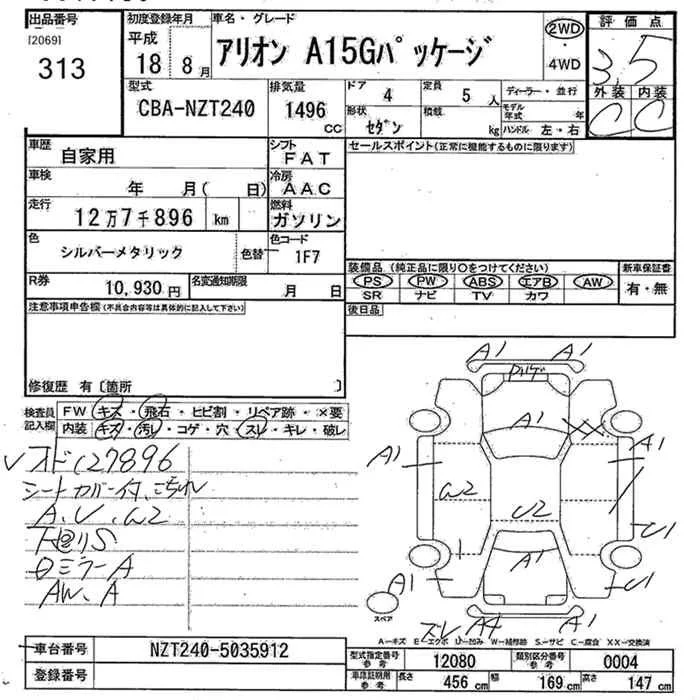 出品番号
[2069]
313
初度登録年月
平成
18 8月
車名・グレード
アリオン A15Gパッケージ
2WD
・
4WD
評価点
3.5
外装 内装
C C
型式
CBA-NZT240
排気量
1496
CC
ドア 4
定員 5人
ディーラー・並行
形状
セダン
積載 kg
モデル年式 年
ハンドル 左・右
車歴
自家用
シフト
FAT
車検
年 月( 日)
冷房
AAC
走行
12万7千896 km
燃料
ガソリン
色
シルバーメタリック
色替
色コード
1F7
R券
10,930円
名変通知期限
月 日
セールスポイント(正常に機能するものに限ります)
装備品(純正品に限り○をつけてください)
PS PW ABS エアB AW
SR ナビ TV カワ
新車保証書
有・無
後日品
注意事項申告欄(不具合内容等は具体的に記入して下さい)
修復歴 有〔箇所 〕
検査員記入欄
FW キズ・飛石・ヒビ割・リペア跡・×要
内装 キズ・汚レ・コゲ・穴・スレ・キレ・破レ
オド127896
シートカバー付
A、U、W2
下廻りS
ミラーA
AW、A
A1 A1
A1
XX
A1 A1
W2
U2
U1
A1
A1 U1
ズレ A4
スペア
A―キズ E―エクボ U―凹み W―補修跡 S―サビ C―腐食 XX―交換済
車台番号
NZT240-5035912
登録番号
型式指定番号
参考
12080
類別区分番号
参考
0004
車庫証明用
参考
長さ 456cm
幅 169cm
高さ 147cm